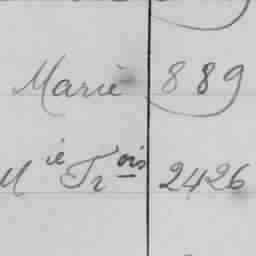 Marie 889
Mie Frois 2426